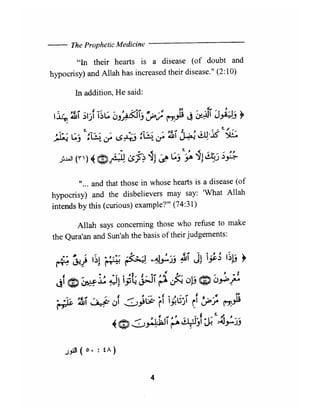 The Prophetic Medicine
"In their hearts is a disease (of doubt and
hypocrisy) and Allah has increased their disease." (2:10)
In addition, He said:
﴿ وليقول الذين في قلوبهم مرض والكافرون ماذا أراد الله بهذا
مثلا كذلك يضل الله من يشاء ويهدي من يشاء وما يعلم
جنود ربك إلا هو وما هي إلا ذكرى للبشر ﴾ (٣١) المدثر
"... and that those in whose hearts is a disease (of
hypocrisy) and the disbelievers may say: 'What Allah
intends by this (curious) example?'" (74:31)
Allah says concerning those who refuse to make
the Qura'an and Sun'ah the basis of their judgements:
﴿ وإذا دعوا إلى الله ورسوله ليحكم بينهم إذا فريق منهم
معرضون وإن يكن لهم الحق يأتوا إليه مذعنين أفي
قلوبهم مرض أم ارتابوا أم يخافون أن يحيف الله عليهم
ورسوله بل أولئك هم الظالمون ﴾
( ٤٨ : ٥٠ ) النور
4